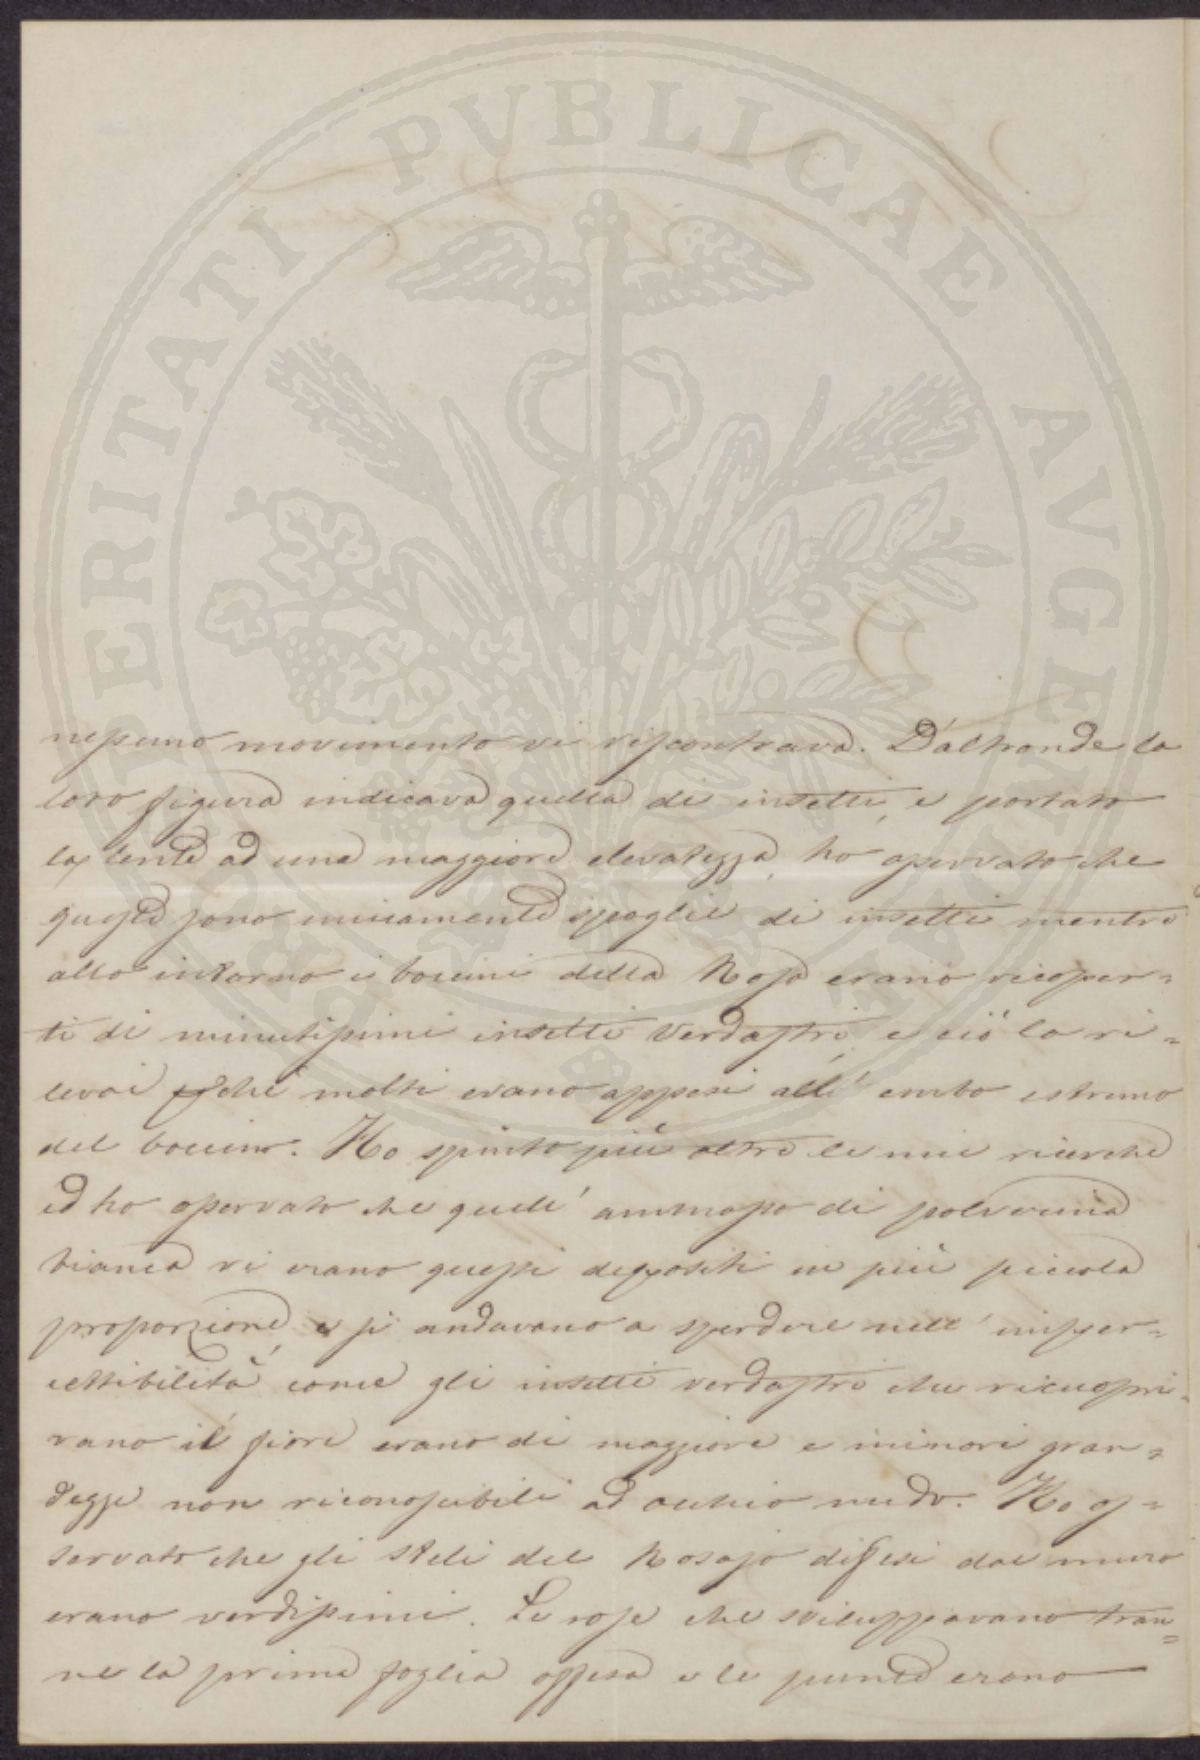 PROSPERITATI PVBLICAE AVGENDAE
nessuno movimento vi riscontrava. D'altronde la
loro figura indicava quella di insetti, e portato
la lente ad una maggiore elevatezza, ho osservato che
queste sono unicamente spoglie di insetti mentre
allo intorno i boccini della Rosa erano ricoper=
ti di minutissimi insetti verdastri e ciò lo ri=
levai chè molti erano appesi all' embo estremo
del boccino. Ho spinto più oltre le mie ricerche
ed ho osservato che quell' ammasso di polverina
bianca vi erano questi depositi in più piccola
proporzione, e si andavano a sperdere nell' imper=
cettibilità come gli insetti verdastri che ricuopri=
vano il fiore erano di maggiore e minore gran=
dezze non riconoscibili ad occhio nudo. Ho os=
servato che gli steli del Rosajo difesi dal muro
erano verdissimi. Le rose che sviluppavano tran=
ne la prima foglia offesa e le punte erano